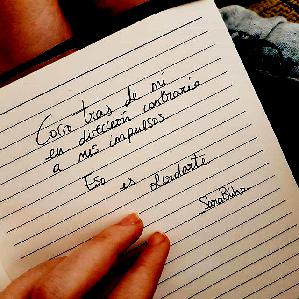 Corro tras de mi
en dirección contraria
a mis impulsos
Eso es olvidarte